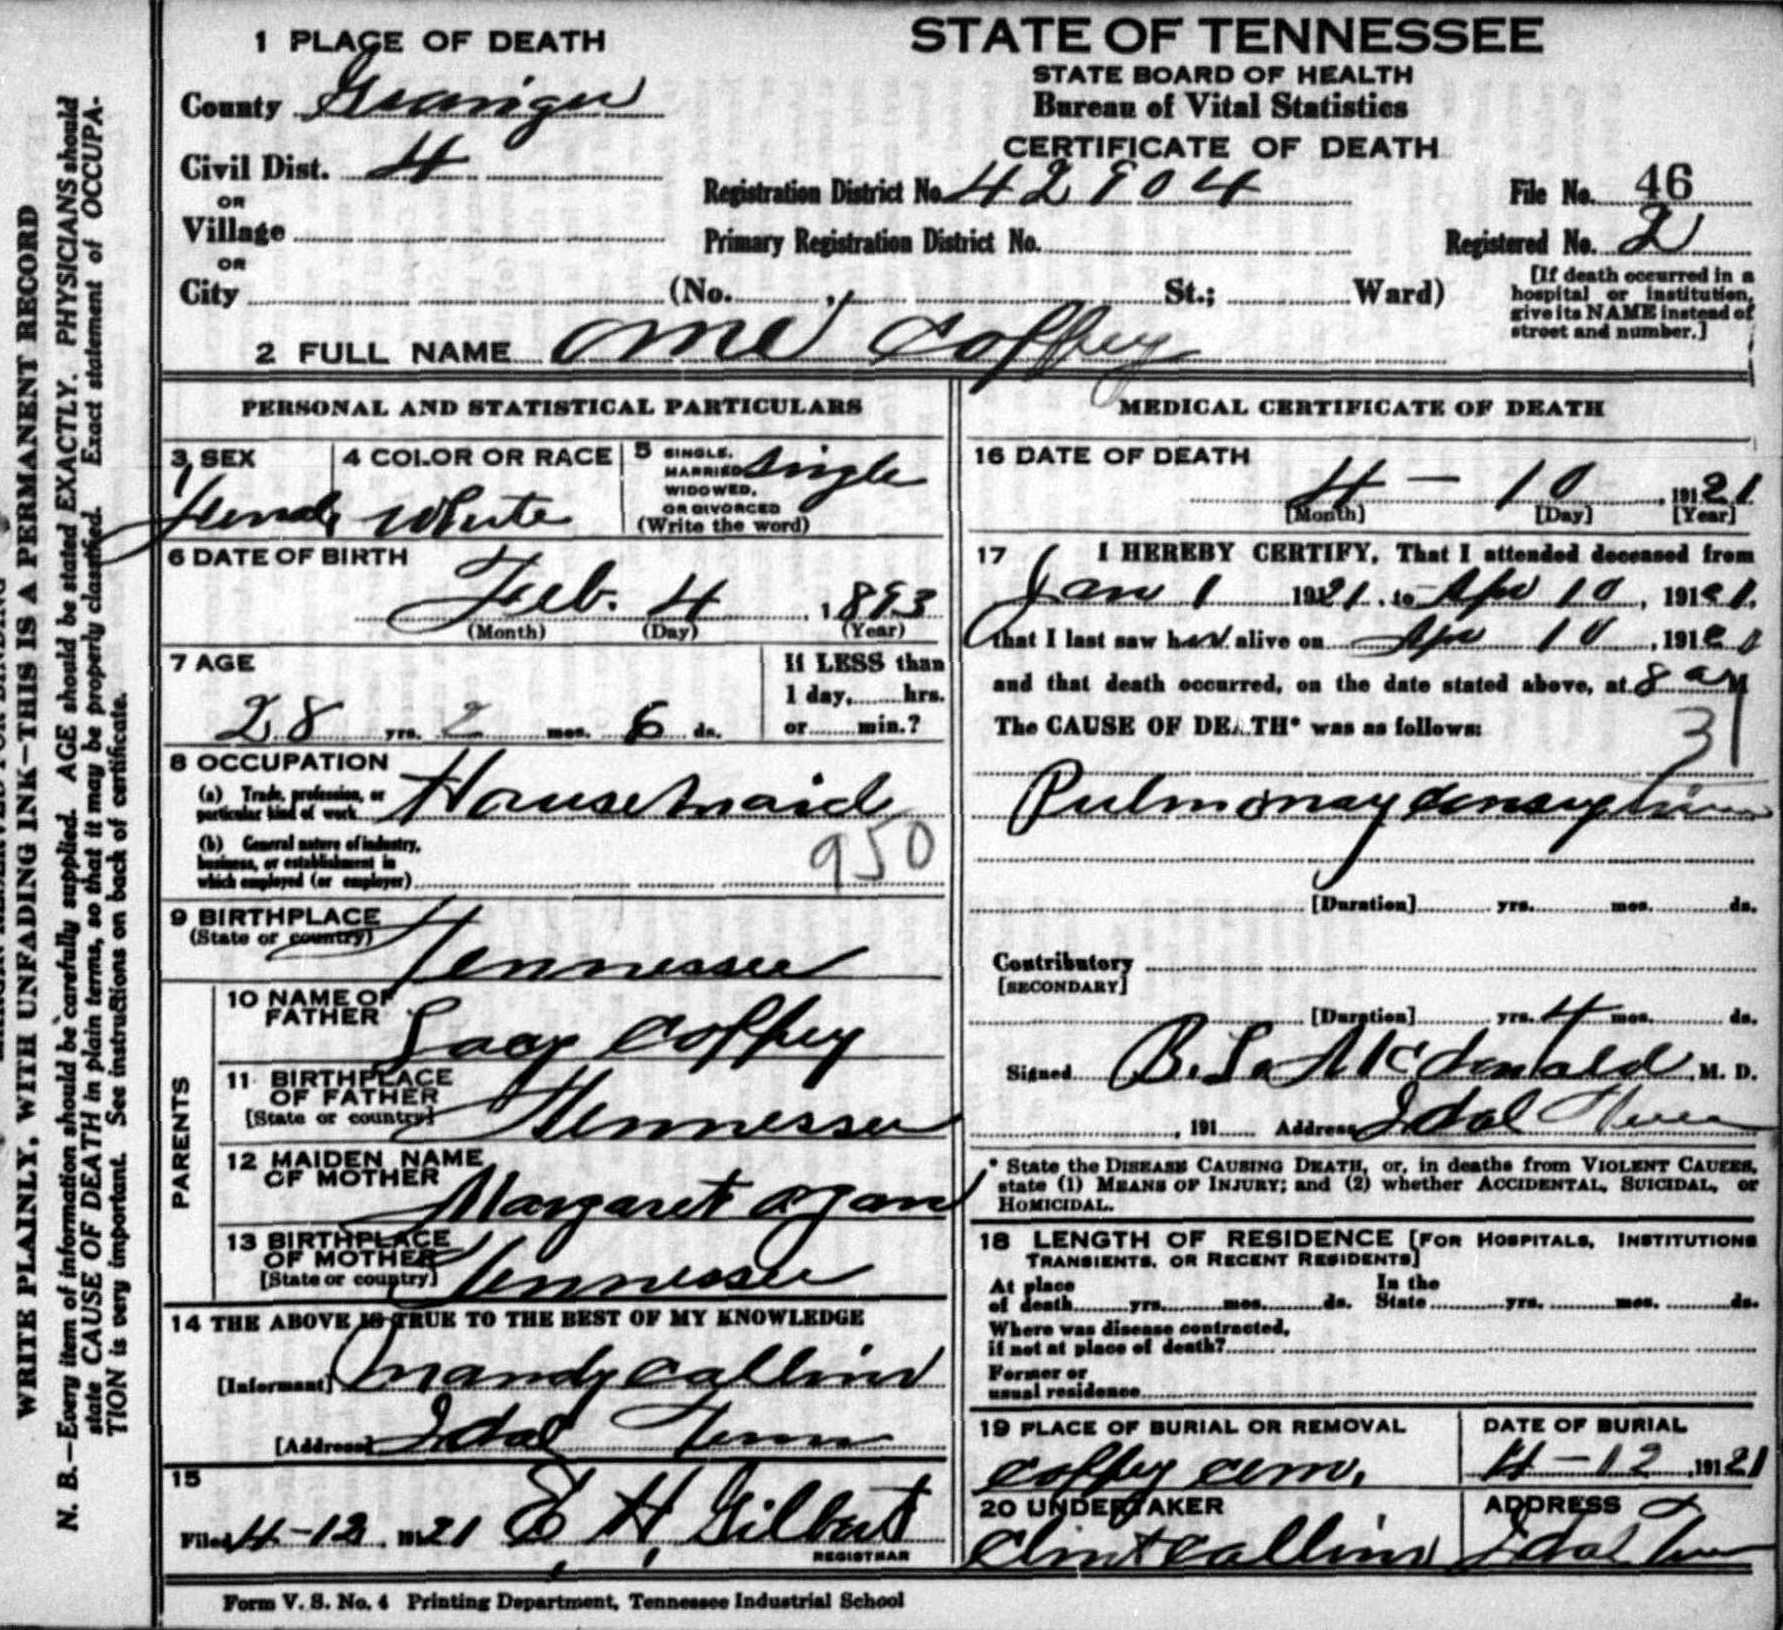 1 PLACE OF DEATH
STATE OF TENNESSEE
STATE BOARD OF HEALTH
Bureau of Vital Statistics
CERTIFICATE OF DEATH
County Grainger
Civil Dist. 4
OR
Village
OR
City (No. , St.; Ward)
Registration District No. 42904
Primary Registration District No.
File No. 46
Registered No. 2
[If death occurred in a
hospital or institution,
give its NAME instead of
street and number.]
2 FULL NAME Coffey
PERSONAL AND STATISTICAL PARTICULARS
3 SEX
Female
4 COLOR OR RACE
White
5 SINGLE,
MARRIED,
WIDOWED,
OR DIVORCED
(Write the word)
Single
6 DATE OF BIRTH
Feb. 4, 1893
(Month) (Day) (Year)
7 AGE
28 yrs. 2 mos. 6 ds.
If LESS than
1 day, hrs.
or min.?
8 OCCUPATION
(a) Trade, profession, or
particular kind of work
Housemaid
(b) General nature of industry,
business, or establishment in
which employed (or employer)
950
9 BIRTHPLACE
(State or country)
Tennessee
PARENTS
10 NAME OF
FATHER
Coffey
11 BIRTHPLACE
OF FATHER
[State or country]
Tennessee
12 MAIDEN NAME
OF MOTHER
Margaret
13 BIRTHPLACE
OF MOTHER
[State or country]
Tennessee
14 THE ABOVE IS TRUE TO THE BEST OF MY KNOWLEDGE
[Informant] Mandy Collins
[Address] Idol Tenn
15
Filed 4-12, 1921 E. H. Gilbert
REGISTRAR
MEDICAL CERTIFICATE OF DEATH
16 DATE OF DEATH
4 - 10, 1921
[Month] [Day] [Year]
17 I HEREBY CERTIFY, That I attended deceased from
Jan 1 1921, to Apr 10, 1921,
that I last saw her alive on Apr 10, 1921
and that death occurred, on the date stated above, at 8 a M
The CAUSE OF DEATH* was as follows:
31
Pulmonay consuption
[Duration] yrs. mos. ds.
Contributory
[SECONDARY]
[Duration] yrs. 4 mos. ds.
Signed B. L. McDonald, M. D.
, 191 Address Idol Tenn
* State the DISEASE CAUSING DEATH, or, in deaths from VIOLENT CAUSES,
state (1) MEANS OF INJURY; and (2) whether ACCIDENTAL, SUICIDAL, or
HOMICIDAL.
18 LENGTH OF RESIDENCE [FOR HOSPITALS, INSTITUTIONS
TRANSIENTS, OR RECENT RESIDENTS]
At place
of death yrs. mos. ds.
In the
State yrs. mos. ds.
Where was disease contracted,
if not at place of death?
Former or
usual residence
19 PLACE OF BURIAL OR REMOVAL
Coffey Cem.
DATE OF BURIAL
4-12, 1921
20 UNDERTAKER
Clint Collins
ADDRESS
Idol Tenn
Form V. S. No. 4 Printing Department, Tennessee Industrial School
WRITE PLAINLY, WITH UNFADING INK—THIS IS A PERMANENT RECORD
N. B.—Every item of information should be carefully supplied. AGE should be stated EXACTLY. PHYSICIANS should
state CAUSE OF DEATH in plain terms, so that it may be properly classified. Exact statement of OCCUPA-
TION is very important. See instructions on back of certificate.